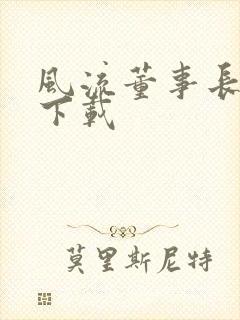 風流董事長
下載
莫里斯尼特